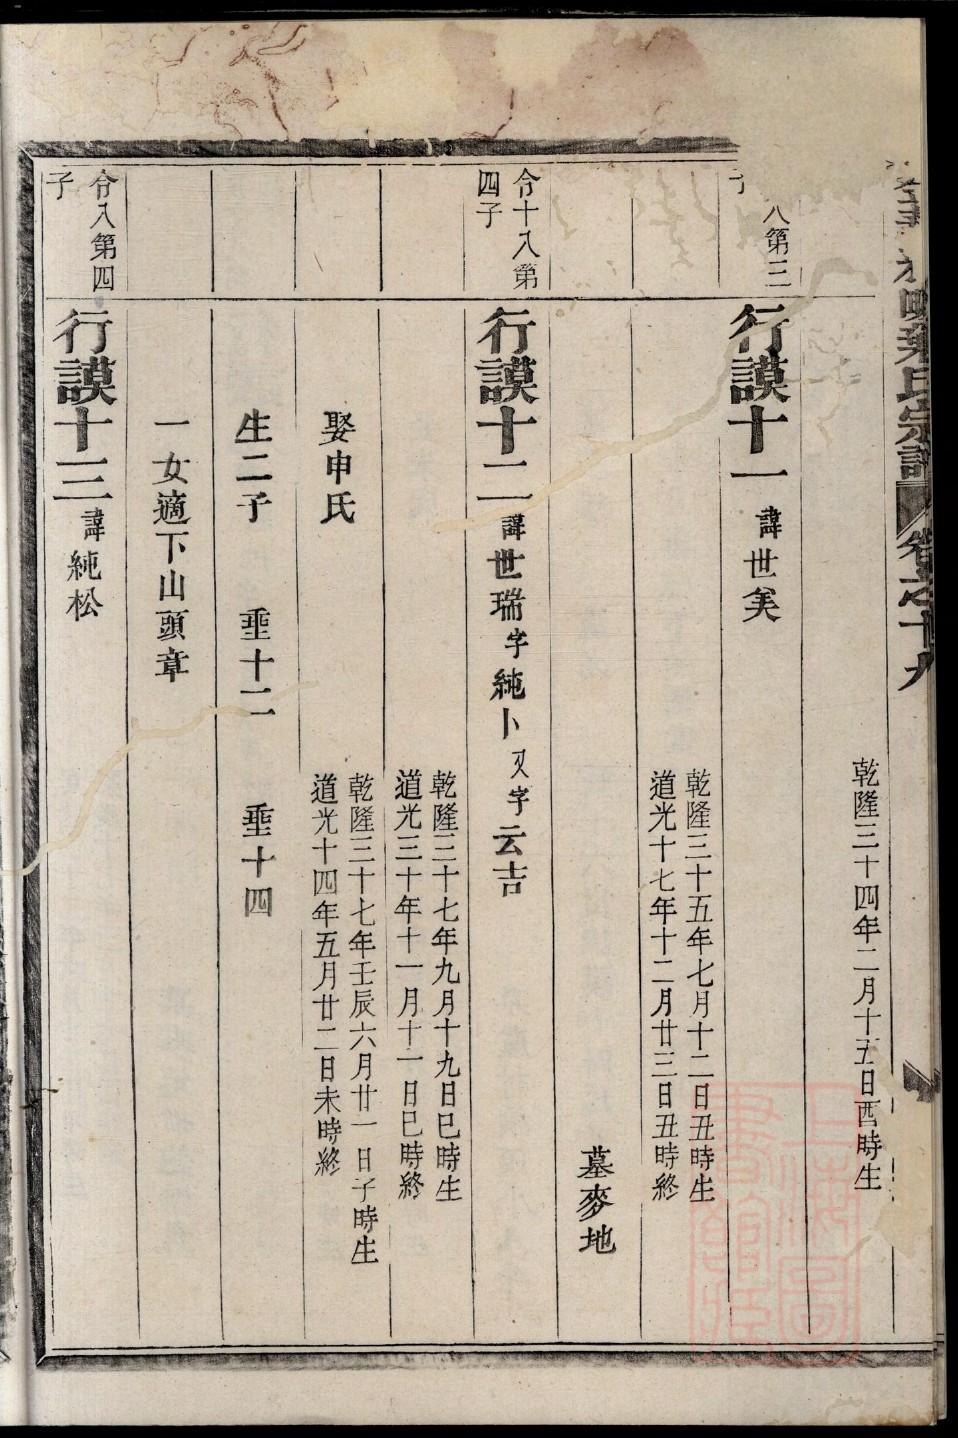 葉氏宗譜
卷之十九
乾隆三十四年二月十五日酉時生
八第三
子
行謨十一 諱世㒸
乾隆三十五年七月十二日丑時生
道光十七年十二月廿三日丑時終
墓麥地
令十八第
四子
行謨十二 諱世瑞字純卜又字云吉
乾隆三十七年九月十九日巳時生
道光三十年十一月十一日巳時終
娶申氏
乾隆三十七年壬辰六月廿一日子時生
道光十四年五月廿二日未時終
生二子 垂十二 垂十四
一女適下山頭章
令八第四
子
行謨十三 諱純松